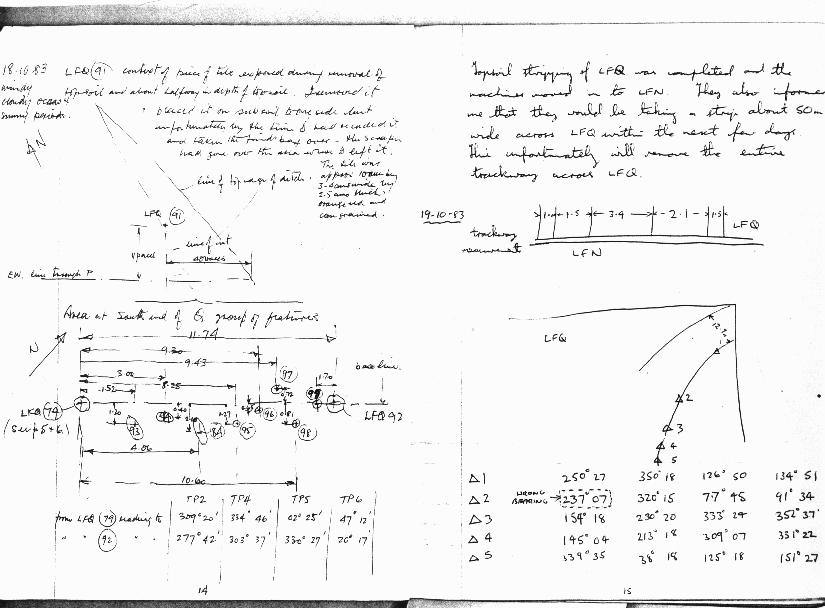 18.10.83 LFQ 91 context of piece of tile exposed during removal of
windy topsoil and about halfway in depth of topsoil. I removed it
cloudy
sunny periods. placed it on subsoil to one side but
unfortunately by the time I had recorded it
and taken the had gone over the area where I left it.
The tile was
approx 10 cms by
3-4 cms wide by
2.5 cms thick.
orange red and
N
line of top edge of ditch.
LFQ 91
line of
EW. line through P
Area at South end of Q group of features
11.74
9.30
9.43
3.00
8.25
1.52
1.70
base line.
N
97
0.72
LFQ 74
LFQ 92
1.20
0.40
1.27
0.81
93
84
95
96
98
4.06
10.60
TP2 TP4 TP5 TP6
from LFQ 74 reading to 309° 20' 334° 46' 02° 25' 47° 12'
" " 92 " " 277° 42' 303° 37' 332° 27' 20° 17'
14
Topsoil stripping of LFQ was completed and the
machines moved in to LFN. They also informed
me that they would be taking a strip about 50m
wide across LFQ within the next few days.
This unfortunately will remove the entire
trackway across LFQ.
19-10-83
1.5 3.4 2.1 1.5 LFQ
trackway
measurements
LFN
LFQ
2
3
4
5
Δ1 250° 27 350° 18 126° 50 134° 51
Δ2 WRONG BEARING → 237° 07 320° 15 77° 45 91° 34
Δ3 154° 18 230° 20 333° 24 352° 37'
Δ4 145° 04 213° 18 309° 07 331° 22
Δ5 339° 35 38° 18 125° 18 151° 27
15